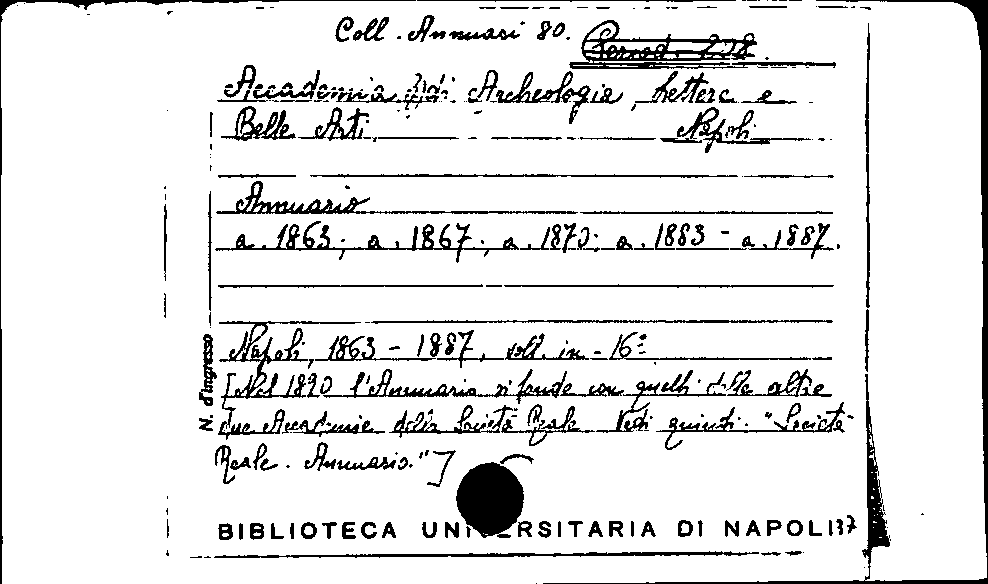 Coll. Annuari 80. Period. 238
Accademia di Archeologia, Lettere e
Belle Arti. Napoli
Annuario
a. 1863; a. 1867; a. 1870; a. 1883 - a. 1887.
Napoli, 1863 - 1887, voll. in - 16º
[Nel 1890 l'Annuario si fonde con quelli delle altre
due Accademie della Società Reale. Vedi quindi: "Società
Reale. Annuario."]
N. d'Ingresso
BIBLIOTECA UNIVERSITARIA DI NAPOLI 37